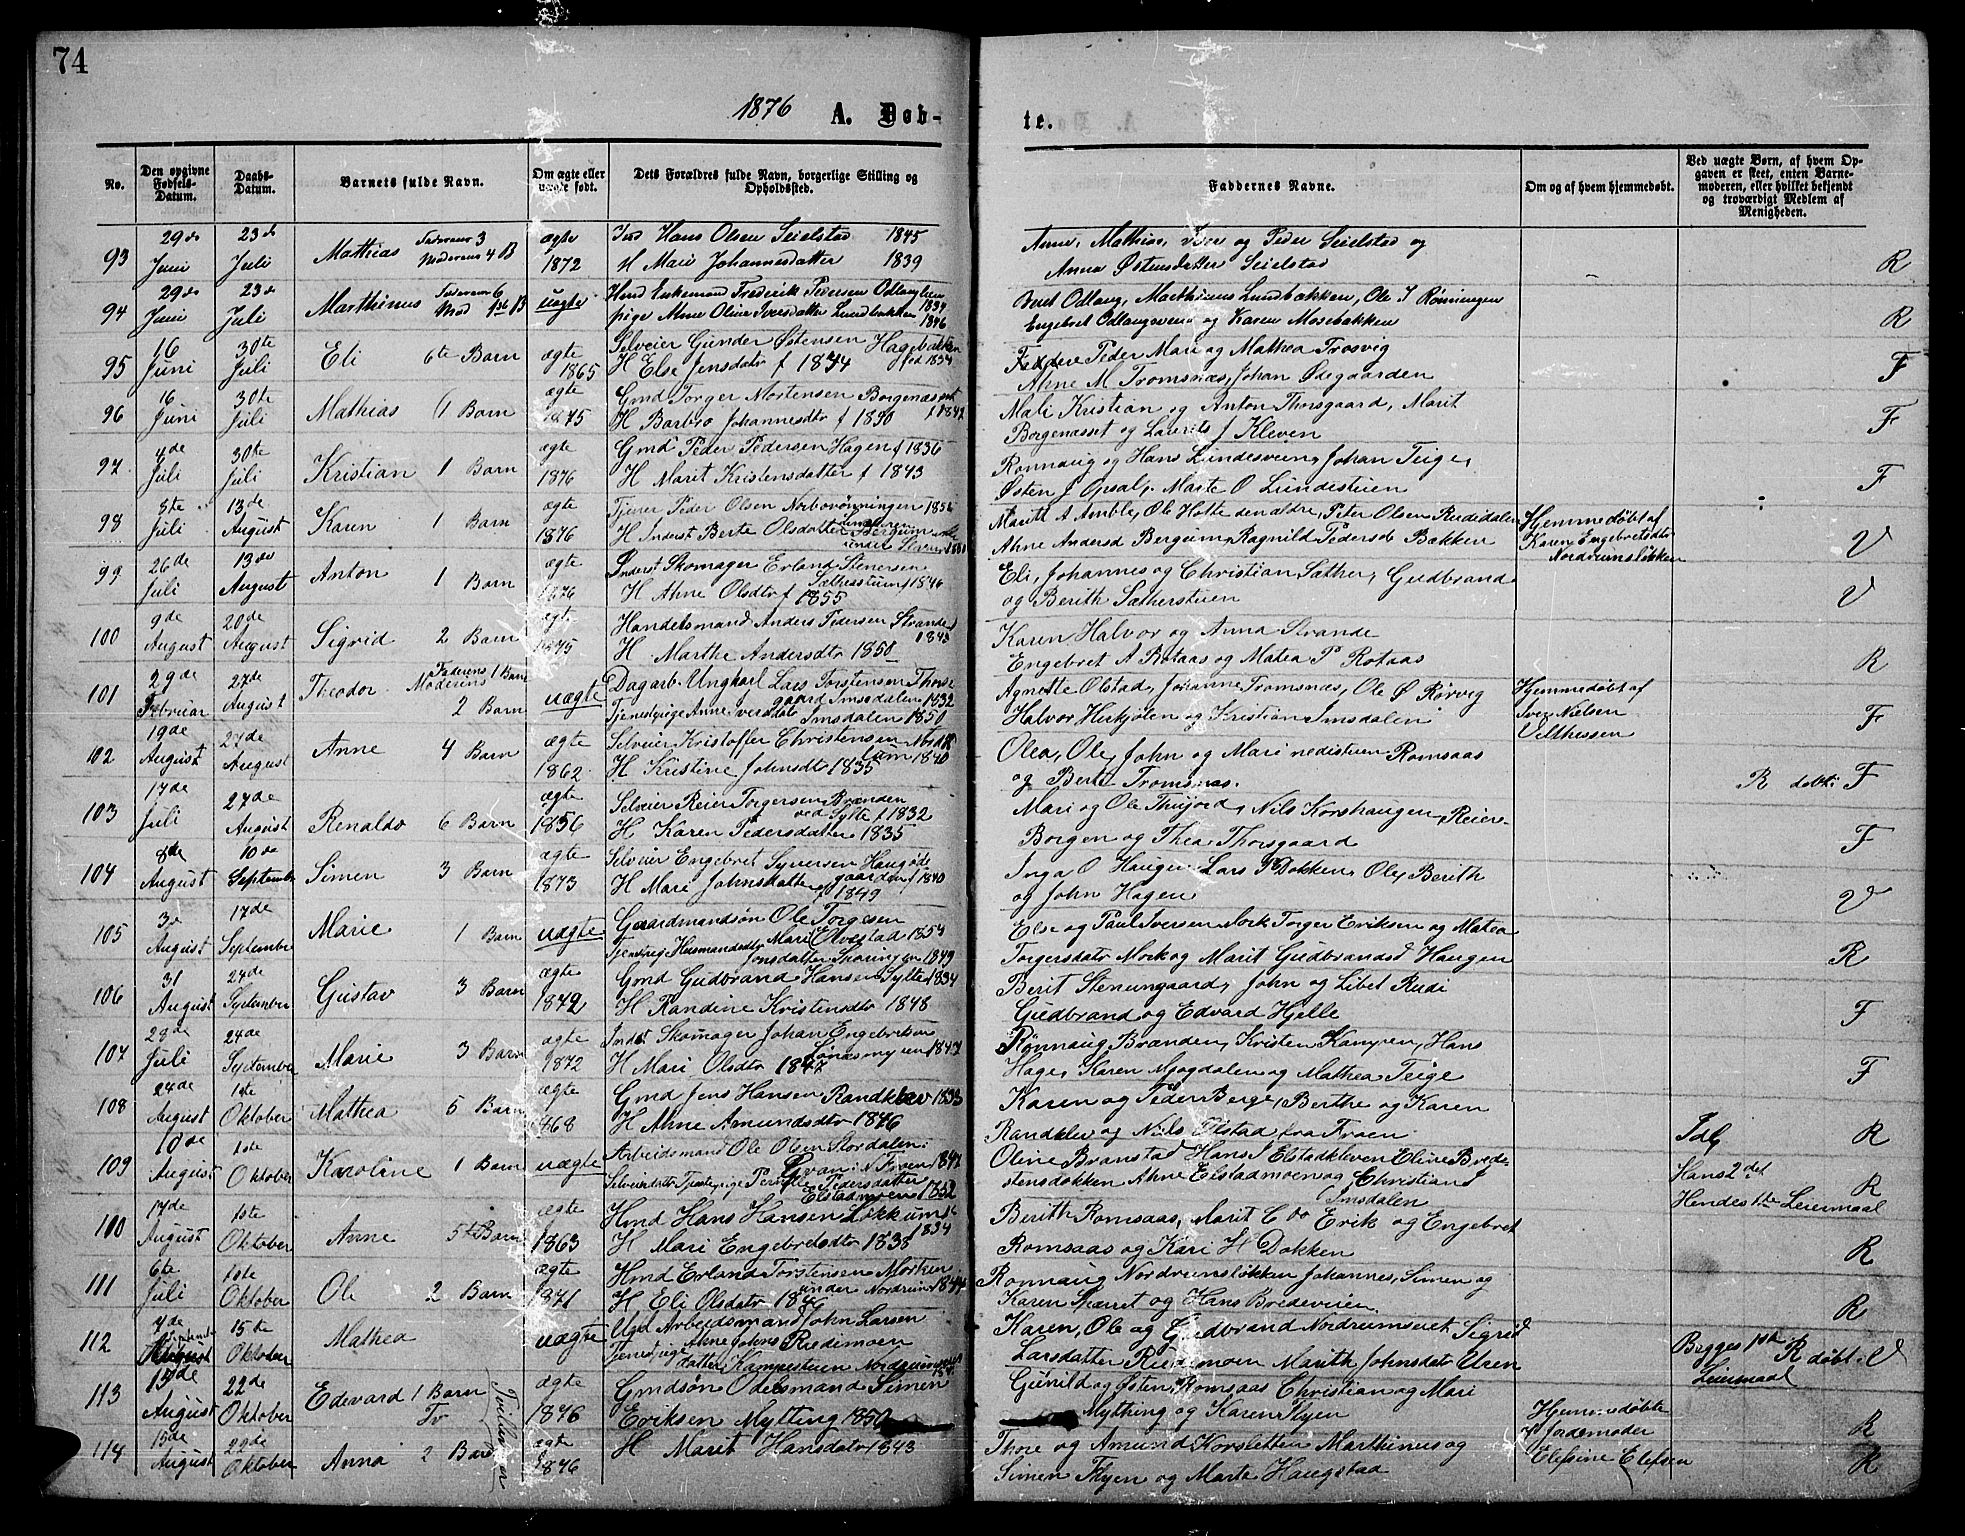 74
1876 A. Døb-
te.
No.
Den opgivne Fødsels-Datum.
Daabs-Datum.
Barnets fulde Navn.
Om ægte eller uægte født.
Dets Forældres fulde Navn, borgerlige Stilling og Opholdssted.
Faddernes Navne.
Om og af hvem hjemmedøbt.
Ved uægte Børn, af hvem Op-
gaven er skeet, enten Barne-
moderen, eller hvilket bekjendt
og troværdigt Medlem af
Menigheden.
29de 23de Faderens 3 ægte Hans Olsen Seielstad 1845 Anne, Mathias, Iver og Peder Seielstad og
93 Juni Juli Mathias Moderens 4 B 1872 H Mari Johannesdatter 1839 Anna Østensdatter Seielstad R
29de 23de Faderens 6 uægte Frederik Pedersen 1834 Beret Odlaug, Marthinus Lundbakken, Ole J Rønningen
94 Juni Juli Marthinus Mod 1ste B pige Anne Oline Iversdatter Lundbakken 1846 Engebret og Karen Mosebakken R
16 30te ægte Selveier Gunder Østensen Hagebakken fød 1834 Peder Mari og Mathea Trosvig
95 Juni Juli Eli 6te Barn 1865 H Else Jensdatr f 1834 Ahne M Tromsnæs, Johan Ødegaarden F
16 30te ægte Gmd Torger Mortensen Borgenæsset f 1842 Mali Kristian og Anton Thorsgaard, Marit
96 Juni Juli Mathias 1 Barn 1875 H Barbro Johannesdtr f 1850 Borgenæsset og Laurits J Kleven F
4de 30te ægte Gmd Peder Pedersen Hagen f 1836 Ronnaug og Hans Lundesveen, Johan Teige,
97 Juli Juli Kristian 1 Barn 1876 H Marit Kristensdatter f 1843 Østen J Opsal, Marte O Lundestuen F
5te 13de ægte Tjener Peder Olsen Marith A Amble, Ole Hotte den aldre, Peter Olsen Rudidalen Hjemmedøbt af
98 Juli August Karen 1 Barn 1876 H Inderst Berte Olsdatter Ahne Andersd Bergum, Ragnild Pedersdr Bakken Karen Engebretsdtr V
Nordrumsløkken
26de 13de ægte Inderst Skomager Erland Stenersen Sætherstuen f 1846 Eli, Johannes og Christian Sæther, Gudbrand
99 Juli August Anton 1 Barn 1876 H Ahne Olsdtr f 1855 og Berith Sætherstuen V
9de 20de ægte Handelsmand Anders Pedersen Strande f 1843 Karen Halvor og Anna Strande
100 August August Sigrid 2 Barn 1875 H Marthe Andersdtr 1850 Engebret A Rotaas og Matea P Rotaas R
29de 27de Faderens 1 Barn uægte Dagarb. Ungkarl Lars Torstensen Thorsgaard Imsdalen 1832 Agnette Olstad, Johanne Tromsnæs, Ole Ø Rørvig Hjemmedøbt af
101 Februar August Theodor Moderens 2 Barn Tjenestpige Anne Iversdatr Imsdalen 1850 Halvor Herkjølen og Kristian Imsdalen Iver Nielsen F
19de 27de ægte Selveier Kristoffer Christensen 1840 Olea, Ole, John og Mari nedistuen Romsaas
102 August August Anne 4 Barn 1862 H Kristine Johnsdtr 1835 og Berte Tromsnæs. R døbt i F
17de 27de ægte Selveier Reier Torgersen Brænden ved Sylte f 1832 Mari og Ole Thujord, Nils Korshaugen, Reier
103 Juli August Renaldo 6 Barn 1856 H Karen Pedersdatter 1835 Borgen og Thea Thorsgaard F
8de 10de ægte Selveier Engebret Syversen Haugødegaarden f 1840 Inga O Haugen, Lars P Dokken, Ole, Berith
104 August September Simen 3 Barn 1873 H Mari Johnsdatter f 1849 og John Hagen V
3e 17de uægte Gaardmandsøn Ole Torgesen Olvestad 1854 Else og Paul Iversen Mork Torger Eriksen og Matea
105 August September Marie 1 Barn Tjenstpig Husmandsdtr Mari Jonsdatter 1849 Torgersdatr Mork og Marit Gudbrandsd Haugen R
31 24de ægte Gmd Gudbrand Hansen Sylte 1834 Berit Stenumgaard, John og Libet Rudi
106 August September Gustav 3 Barn 1842 H Randine Kristensdtr 1848 Gudbrand og Edvard Hjelle F
23de 24de ægte Indst Skomager Johan Engebretsen 1847 Rønnaug Brænden, Kristen Kampen, Hans
107 Juli September Marie 3 Barn 1872 H Mari Olsdtr 1847 Hage, Karen Mogdalen og Mathea Teige F
24de 1ste ægte Gmd Jens Hansen Randklev 1833 Karen og Peder Berge, Berthe og Karen
108 August Oktober Mathea 5 Barn 1868 H Ahne Amundsdtr 1846 Randklev og Nils Elstad fra Froen R
10de 1ste uægte Arbeidsmand Ole Olsen Stordalen Oline Branstad Hans J Elstadkleven Eline Brede-
109 August Oktober Karoline 1 Barn Tjenstepige Pernille Pedersdatter Elstadmoen 1852 stensdokken Ahne Elstadmoen og Christian Imsdalen Hans 2det R
Hendes 1ste Leiermaal
17de 1ste ægte Hmd Hans Hansen Løkkum 1834 Berith Romsaas, Marit Do Erik og Engebret
100 August Oktober Anne 5te Barn 1863 H Mari Engebretsdtr 1838 Romsaas og Kari H Dokken R
6te 1ste ægte Hmd Erland Torstensen Morken under Nordrum 1844 Ronnaug Nordrumsløkken Johannes, Simen og
111 Juli Oktober Ole 2 Barn 1871 H Eli Olsdatr 1846 Karen Sparret og Hans Bredeveien R
4de 15te uægte Ugst Arbeidsmand John Larsen Rudimoen Karen, Ole og Gudbrand Nordrumseiet Sigrid
112 August Oktober Mathea Tjenestpige Ahne Johnsdatter Kampestuen Larsdatter Rudimoen Marith Johnsdatr Begges 1ste Leiermaal R døbt i V
15de 22de ægte Gmdsøn Odelsmand Simen Gunild og Østen Romsaas Christian og Mari
113 August Oktober Edevard 1 Barn Tv 1876 Eriksen Mytting 1850 Mything og Karen Flyen Hjemmedøbte R
15de 22de Tvillinger ægte Thore og Amund Korsletten Marthinus og af Jordemoder
114 August Oktober Anna 2 Barn 1876 H Marit Hansdatr 1843 Simen Flyen og Marte Haugstad Elefsine Elefsen R